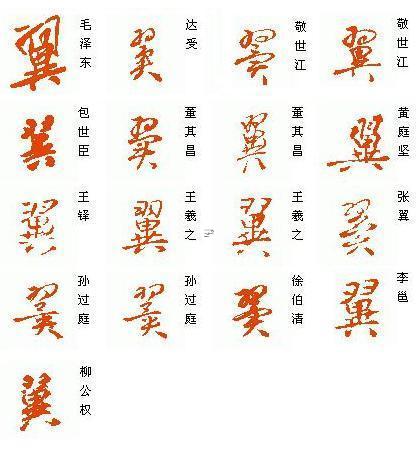 翼 毛泽东 翼 达受 翼 敬世江 翼 敬世江
翼 包世臣 翼 董其昌 翼 董其昌 翼 黄庭坚
翼 王铎 翼 王羲之 翼 王羲之 翼 张翼
翼 孙过庭 翼 孙过庭 翼 徐伯清 翼 李邕
翼 柳公权